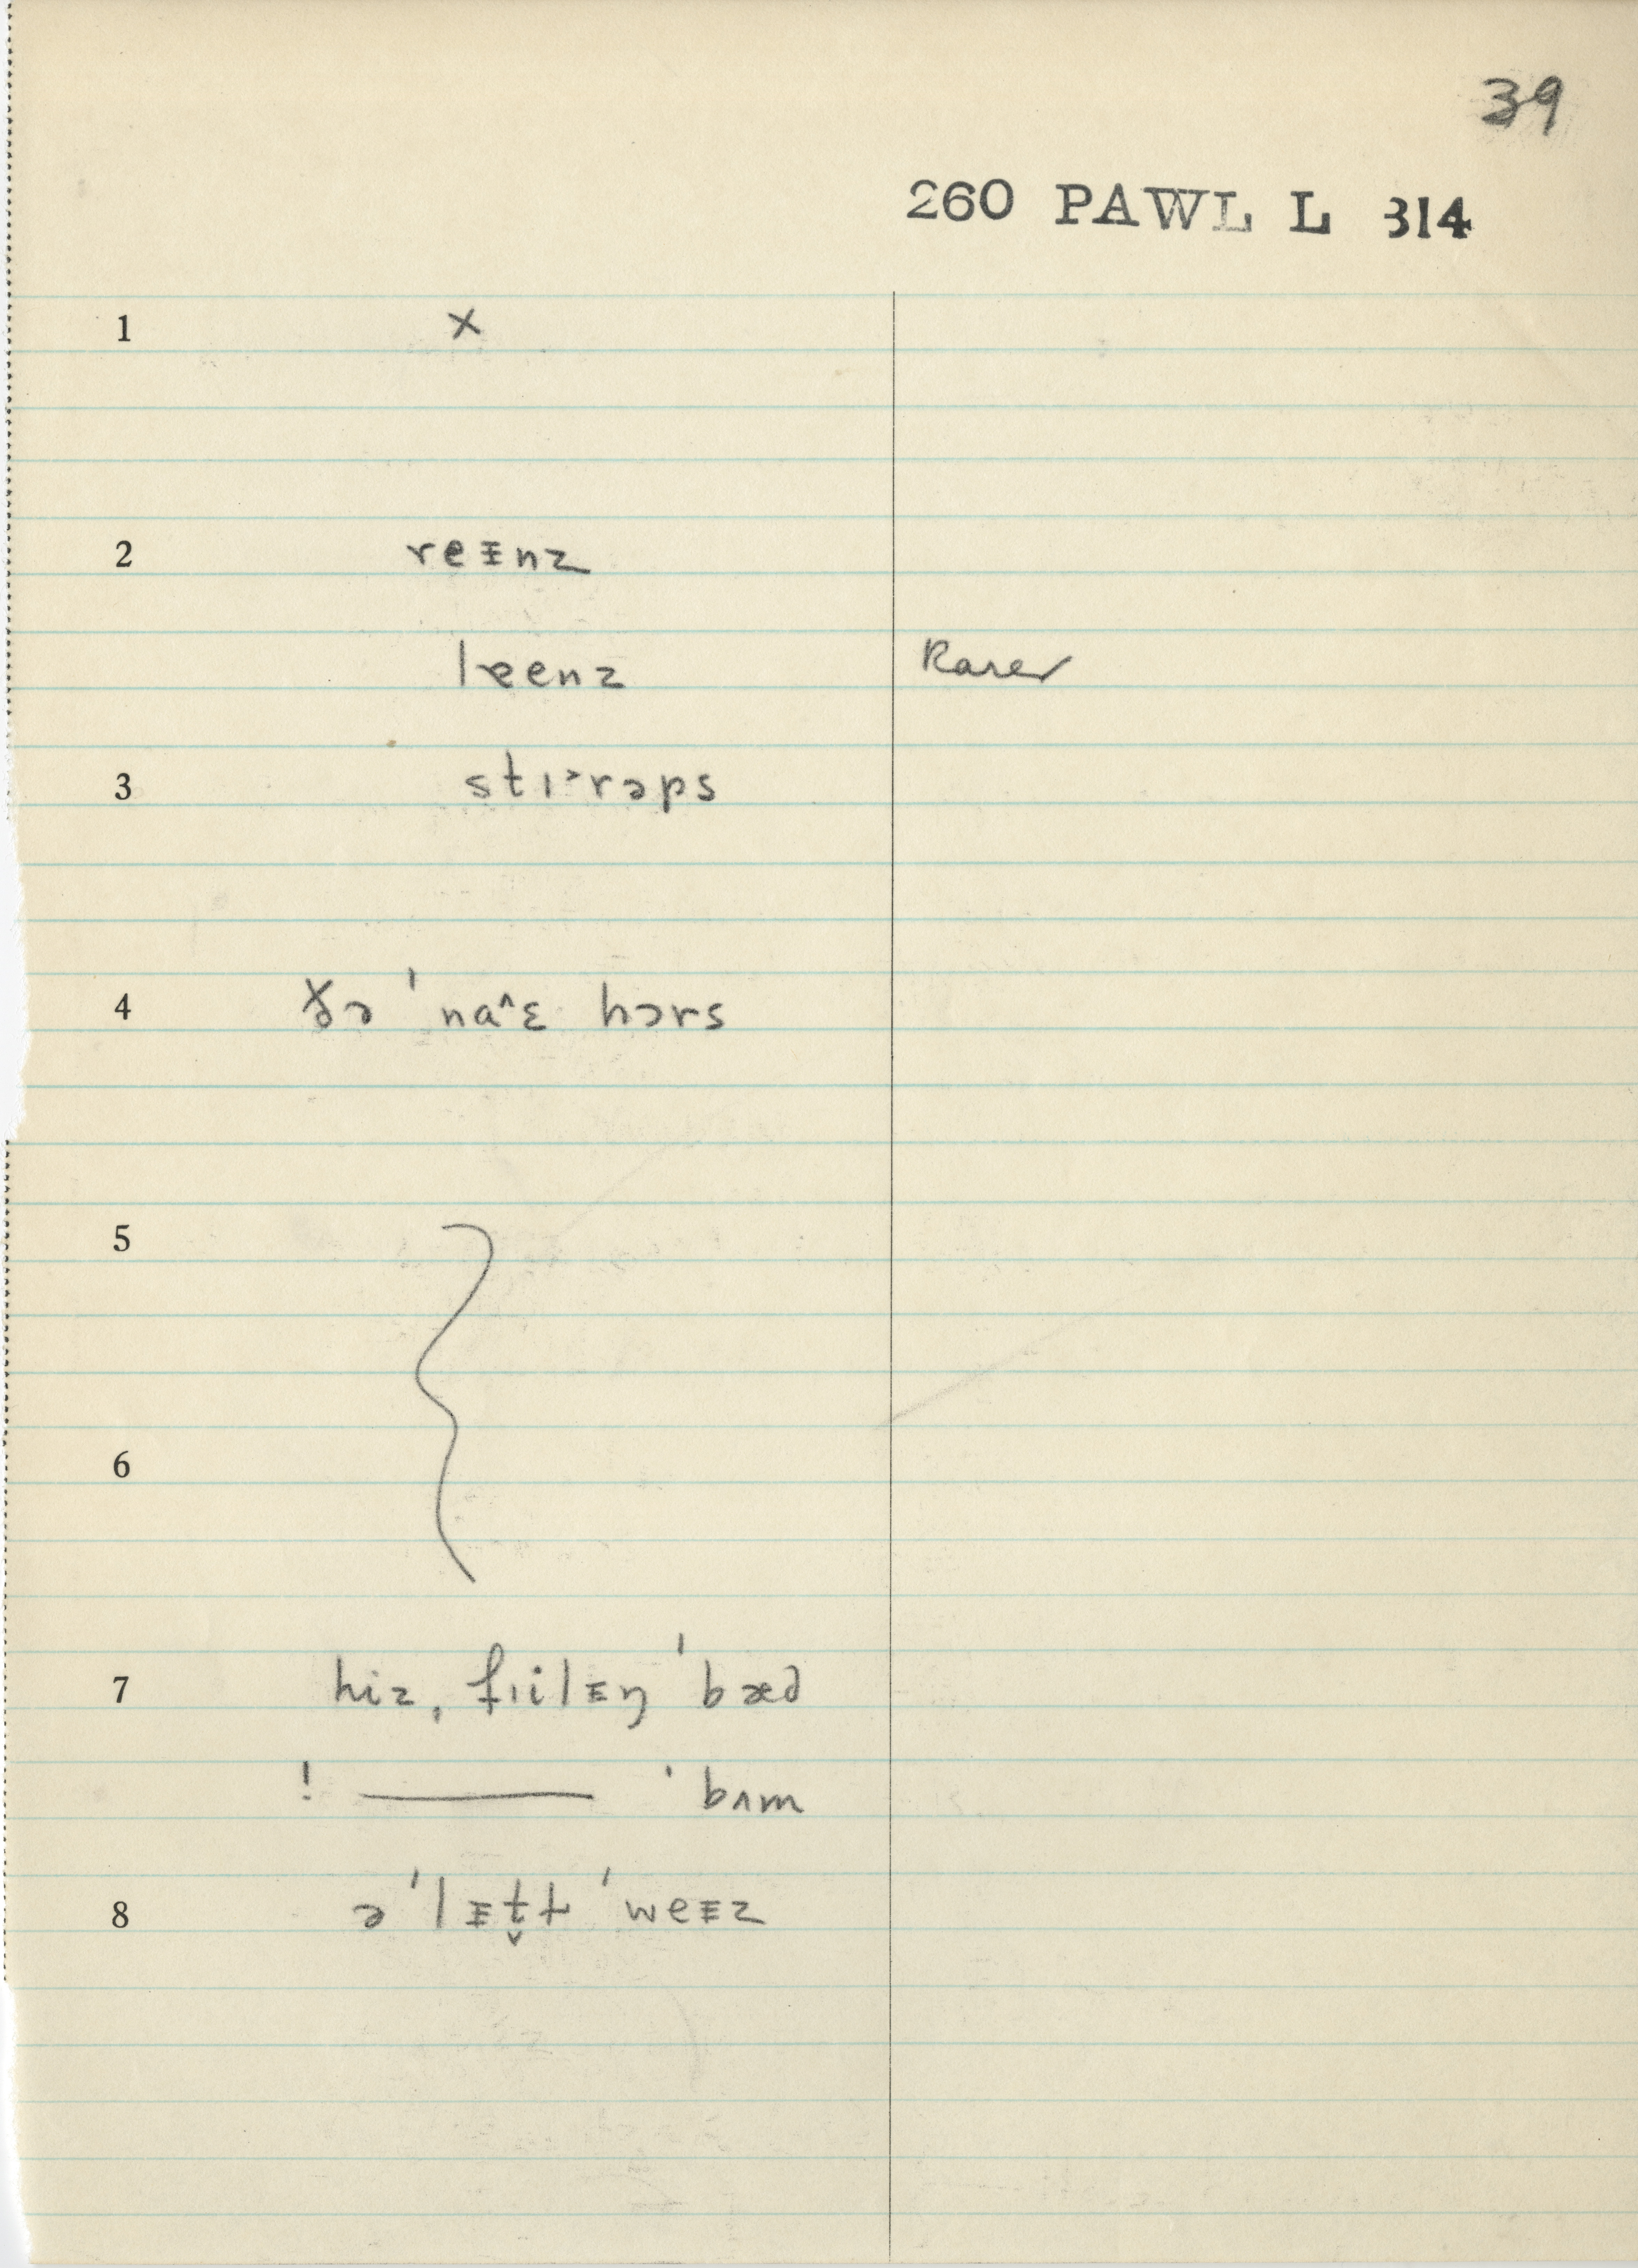 39
260 PAWL L 314
1 ×
2 reᵻnz
lɐenz Rarer
3 stɪ˃rəps
4 ðə ˈna^ɛ hɔrs
5
6
7 hiz ˌfɪilᵻŋ ˈbæd
! ——— ˈbʌm
8 ə ˈlᵻt̬ɫ ˈweᵻz